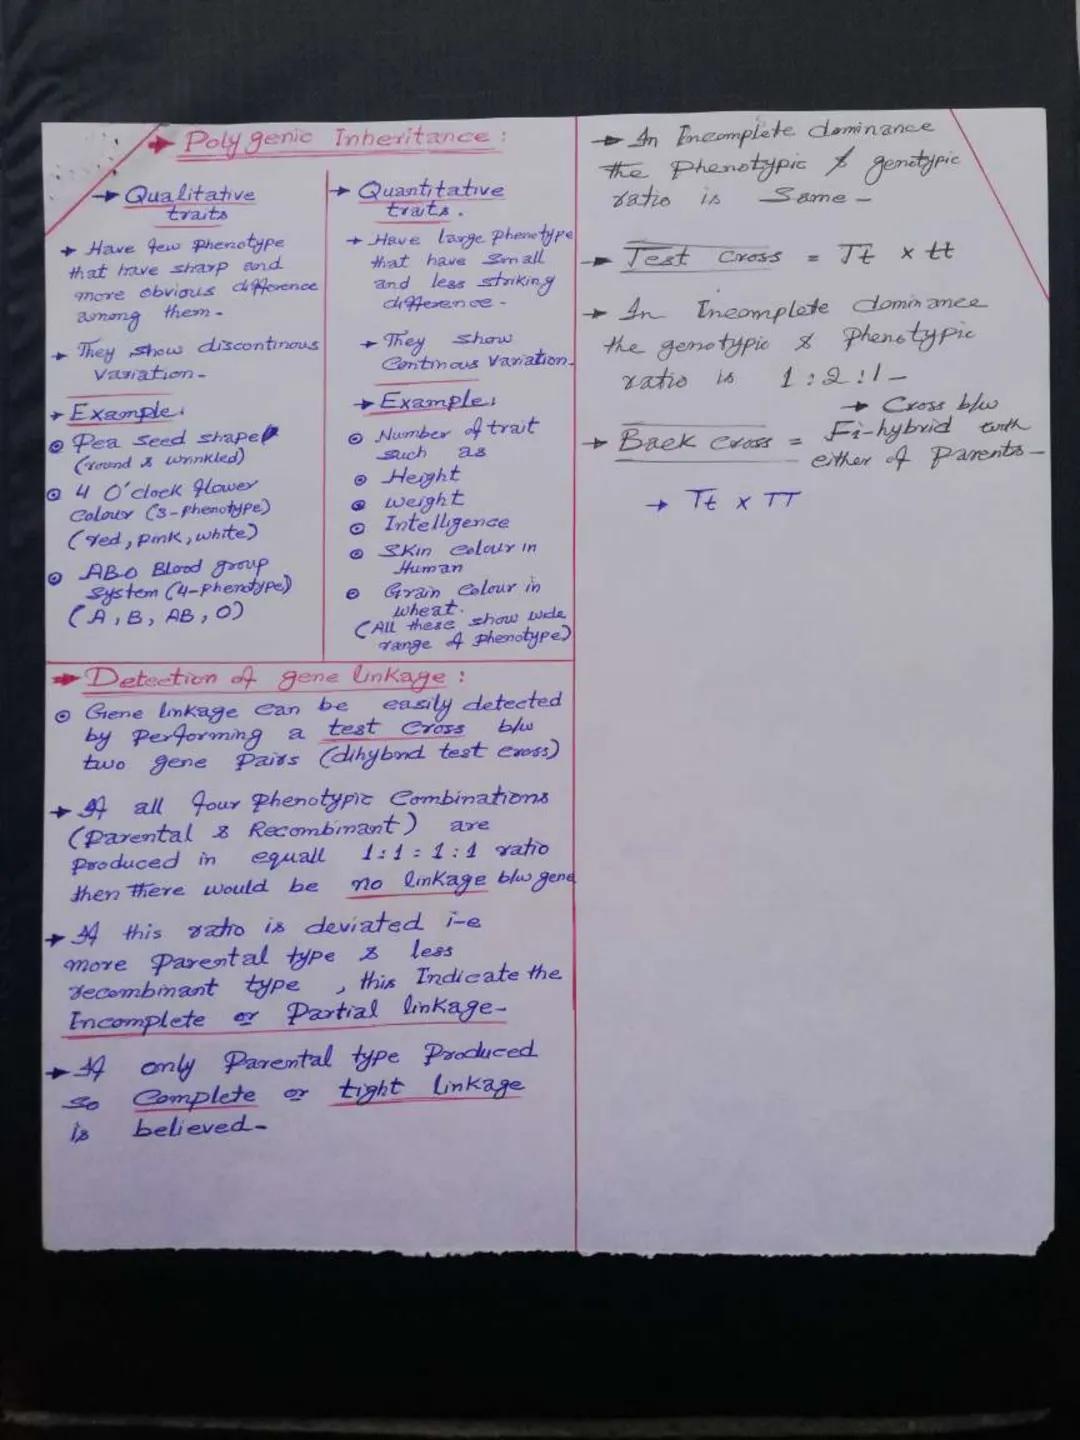 → Polygenic Inheritance :
→ Qualitative
traits
→ Have few phenotype
that have sharp and
more obvious difference
among them-
→ They show discontinous
Variation-
→ Example:
Pea seed shape
(round & wrinkled)
4 O'clock flower
Colour (3-phenotype)
(red, pink, white)
ABO Blood group
system (4-phenotype)
(A, B, AB, O)
→ Quantitative
traits.
→ Have large phenotype
that have small
and less striking
difference-
→ They show
Continous Variation-
→ Example:
Number of trait
such as
Height
weight
Intelligence
Skin colour in
Human
Grain colour in
wheat.
(All these show wide
range of phenotype)
→ Detection of gene linkage :
Gene linkage can be easily detected
by performing a test cross b/w
two gene pairs (dihybrid test cross)
→ If all four phenotypic Combinations
(Parental & Recombinant) are
produced in equall 1:1:1:1 ratio
then there would be no linkage b/w gene
→ If this ratio is deviated i-e
more parental type & less
recombinant type, this Indicate the
Incomplete or Partial linkage-
→ If only Parental type Produced
so Complete or tight linkage
is believed-
→ In Incomplete dominance
the phenotypic & genotypic
ratio is Same-
→ Test Cross = Tt x tt
→ In Incomplete dominance
the genotypic & Phenotypic
ratio is 1:2:1-
→ Back cross = → Cross b/w
F1-hybrid with
either of Parents-
→ Tt x TT